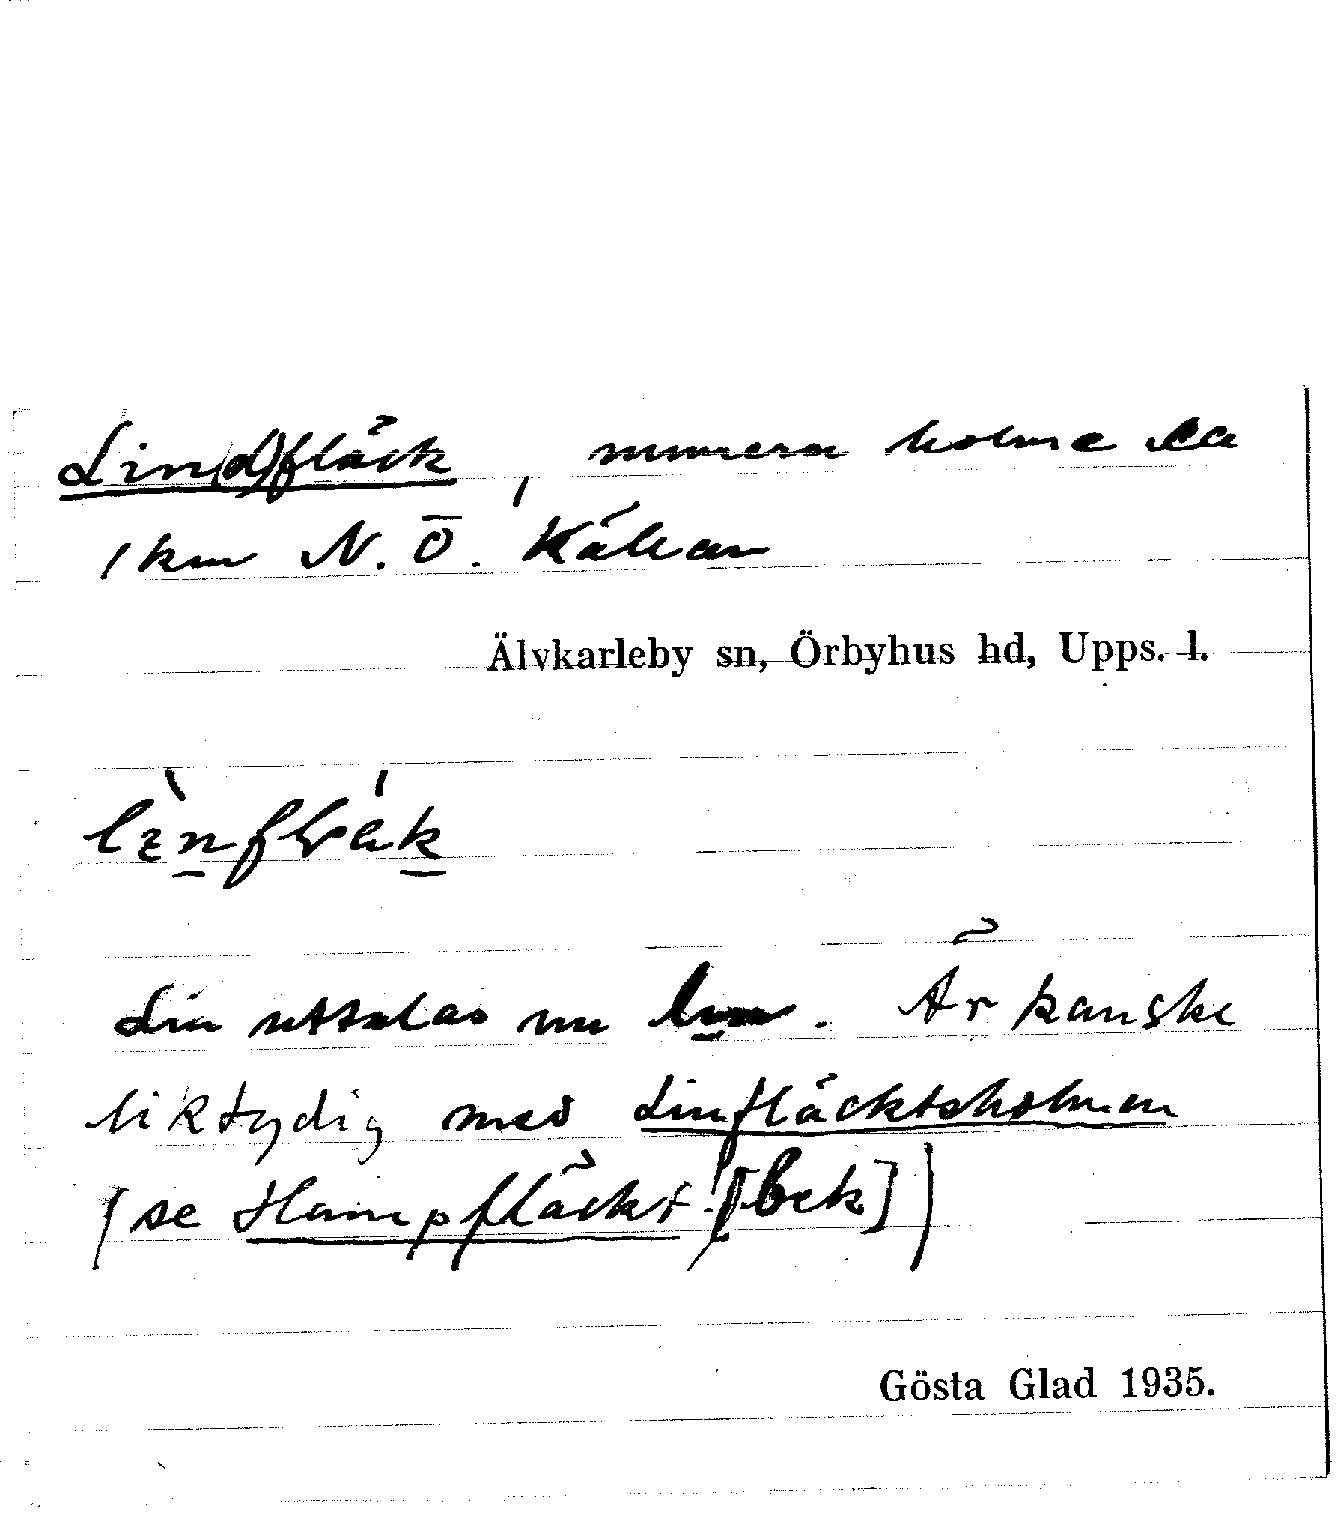 Lin(d)fläck, numera holme ca
1 km N. Ö. Källan
Älvkarleby sn, Örbyhus hd, Upps. l.
Lin uttalas nu . Är kanske
liktydig med Linfläcksholmen
(se Hampfläckt [bek])
Gösta Glad 1935.